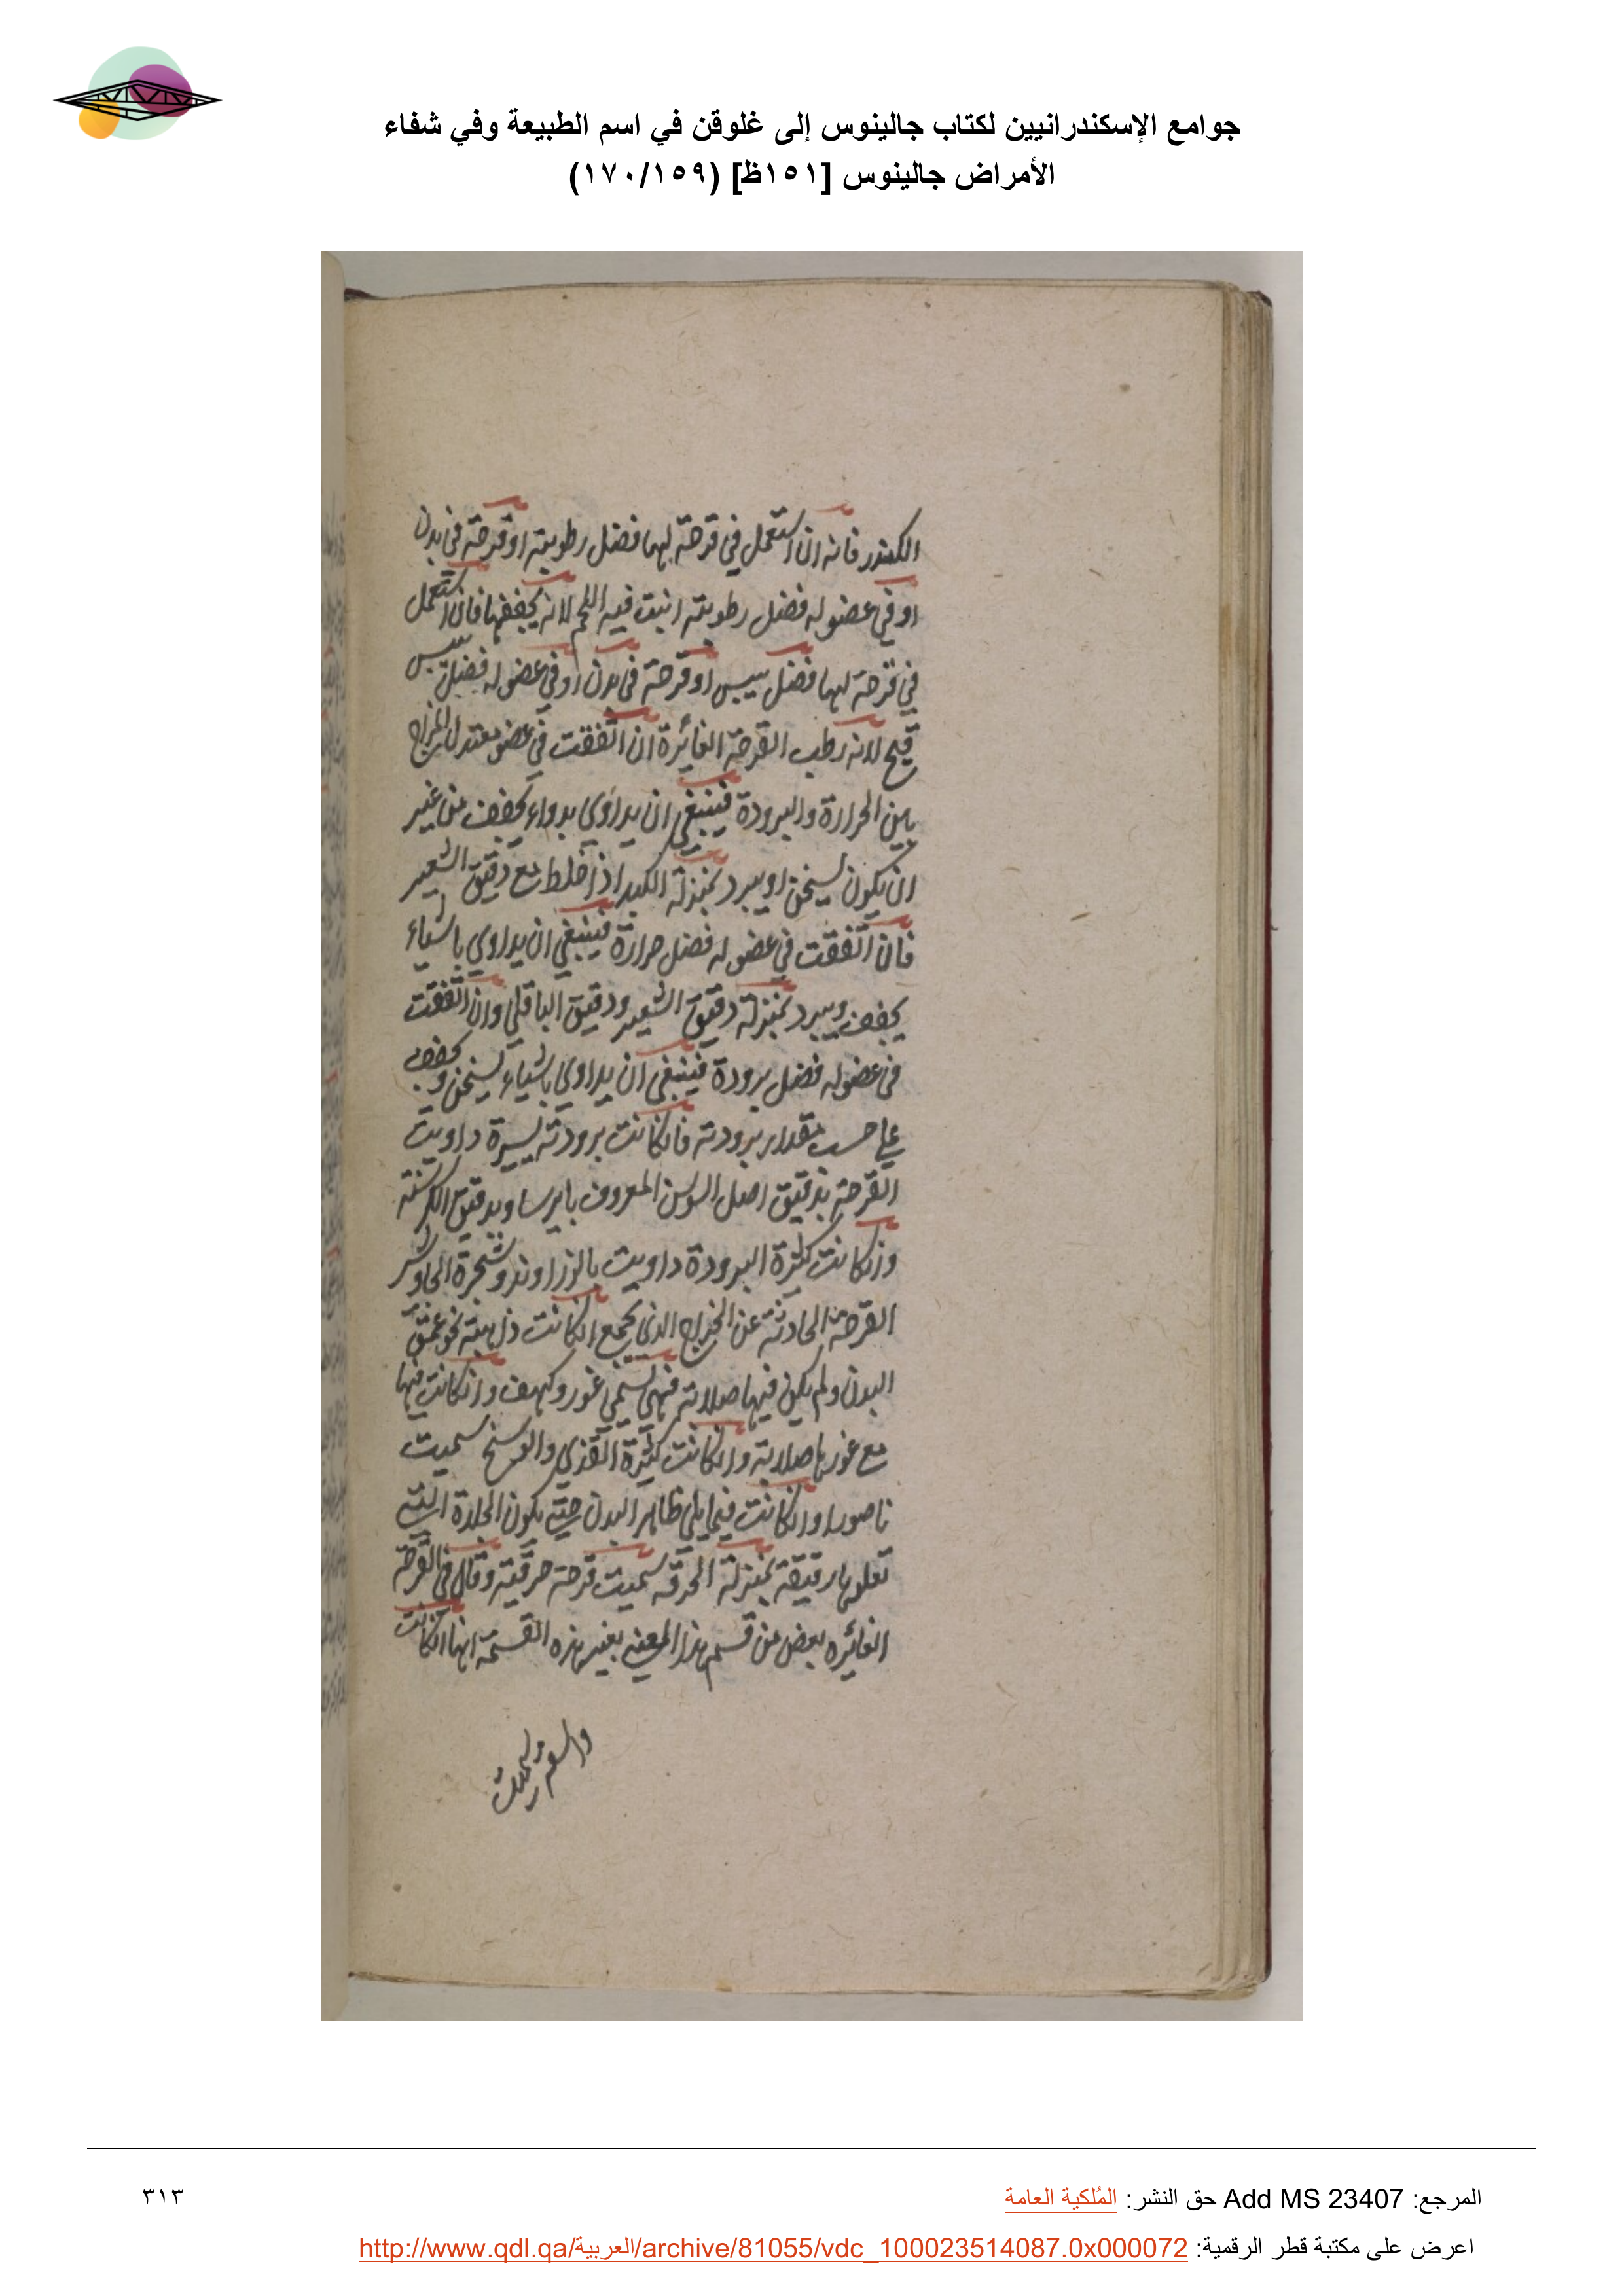 جوامع الإسكندرانيين لكتاب جالينوس إلى غلوقن في اسم الطبيعة وفي شفاء
الأمراض جالينوس [١٥١ظ] (١٧٠/١٥٩)
الكندر فانه ان استعمل في قرحة لها فضل رطوبة او قرحة في بدن
او في عضو له فضل رطوبة انبت فيه اللحم لانه يجففها فان استعمل
في قرحة لها فضل يبس او قرحة في بدن او في عضو له فضل يبس
قيح لانه رطب القرحة الغائرة ان اتفقت في عضو معتدل المزاج
بين الحرارة والبرودة فينبغي ان يداوي بدواء يجفف من غير
ان يكون يسخن او يبرد بمنزلة الكندر اذا خلط مع دقيق الشعير
فان اتفقت في عضو له فضل حرارة فينبغي ان يداوي باشياء
يجفف ويبرد بمنزلة دقيق الشعير ودقيق الباقلي وان اتفقت
في عضو له فضل برودة فينبغي ان يداوي باشياء يسخن ويجفف
علي حسب مقدار برودته فان كانت برودته يسيرة داويت
القرحة بدقيق اصل السوسن المعروف بايرسا وبدقيق الكرسنة
وان كانت كثيرة البرودة داويت بالزراوند وشجرة الجاوشير
القرحة الحادثة عن الخراج الذي يجمع ان كانت ذاهبة نحو عمق
البدن ولم يكن فيها صلابة فهي تسمي غور وكهف وان كانت فيها
مع غورها صلابة وان كانت كثيرة القذي والوسخ سميت
ناصورا وان كانت فيما يلي ظاهر البدن حتي يكون الجلدة التي
تعلوها رقيقة بمنزلة الخرقه سميت قرحة خرقية وقال في القرحة
الغائره بعض من قسم هذا المعني بغير هذه القسمة انها ان كانت
المرجع: Add MS 23407 حق النشر: المُلكية العامة
٣١٣
اعرض على مكتبة قطر الرقمية: http://www.qdl.qa/العربية/archive/81055/vdc_100023514087.0x000072